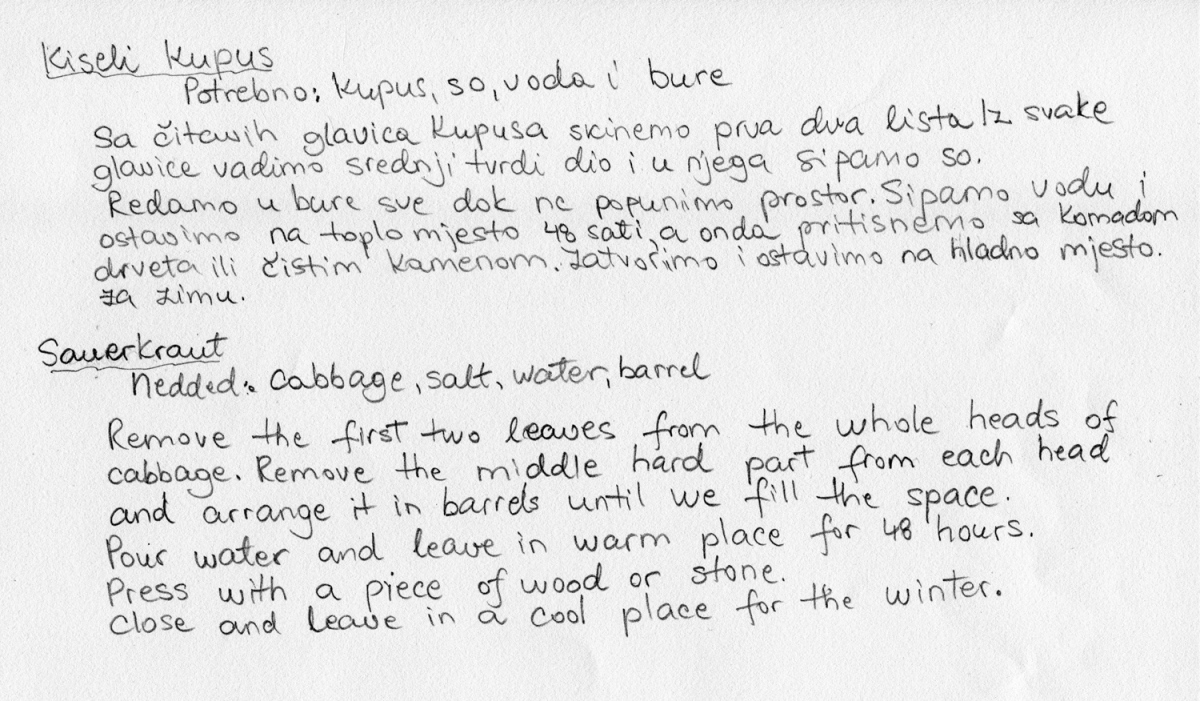 Kiseli Kupus
Potrebno: kupus, so, voda i bure
Sa čitavih glavica kupusa skinemo prva dva lista Iz svake
glavice vadimo srednji tvrdi dio i u njega sipamo so.
Redamo u bure sve dok ne popunimo prostor. Sipamo vodu i
ostavimo na toplo mjesto 48 sati, a onda pritisnemo sa komadom
drveta ili čistim kamenom. Zatvorimo i ostavimo na hladno mjesto.
za zimu.
Sauerkraut
Nedded: cabbage, salt, water, barrel
Remove the first two leaves from the whole heads of
cabbage. Remove the middle hard part from each head
and arrange it in barrels until we fill the space.
Pour water and leave in warm place for 48 hours.
Press with a piece of wood or stone.
Close and leave in a cool place for the winter.